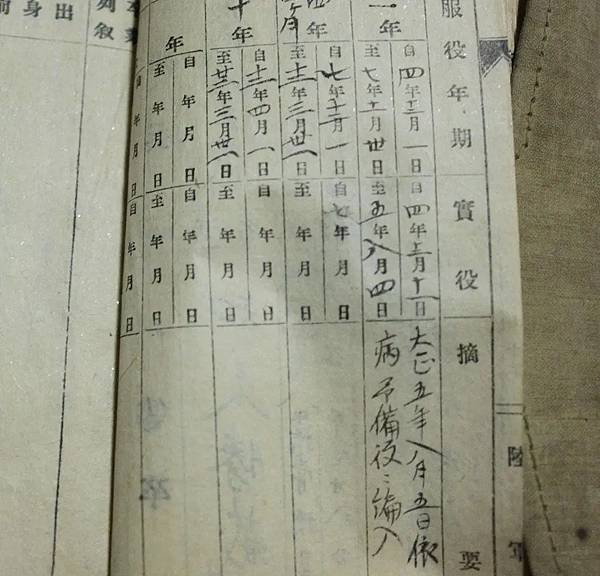 陸軍
服役年期 實役 摘要
一年
自四年十二月一日 自四年十二月十一日 大正五年八月五日依
至七年十一月卅日 至五年八月四日 病予備役ニ編入
年 月
自七年十二月一日 自七年月日
至十二年三月卅一日 至年月日
十年
自十二年四月一日 自年月日
至廿二年三月卅一日 至年月日
年
自年月日 自年月日
至年月日 至年月日
年月日 自年月日
列敘
出身前